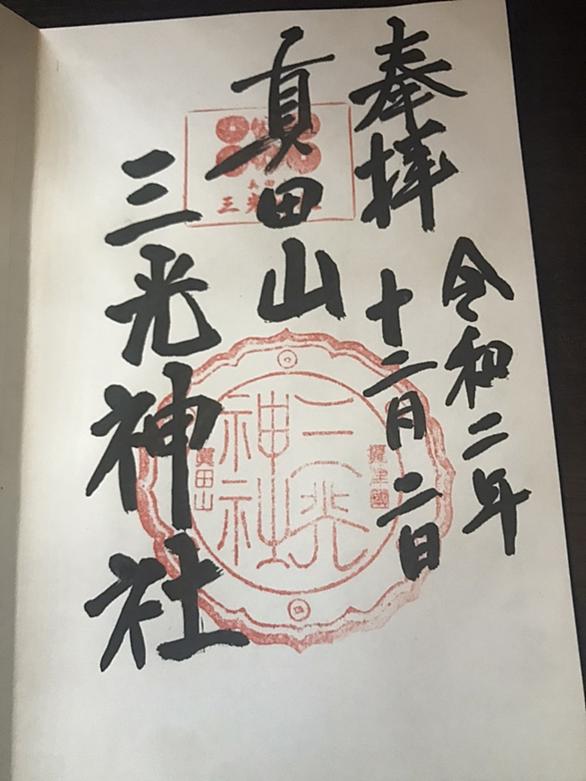 奉拝
令和二年
十二月二日
眞田山
三光神社
三光
神社
眞田山